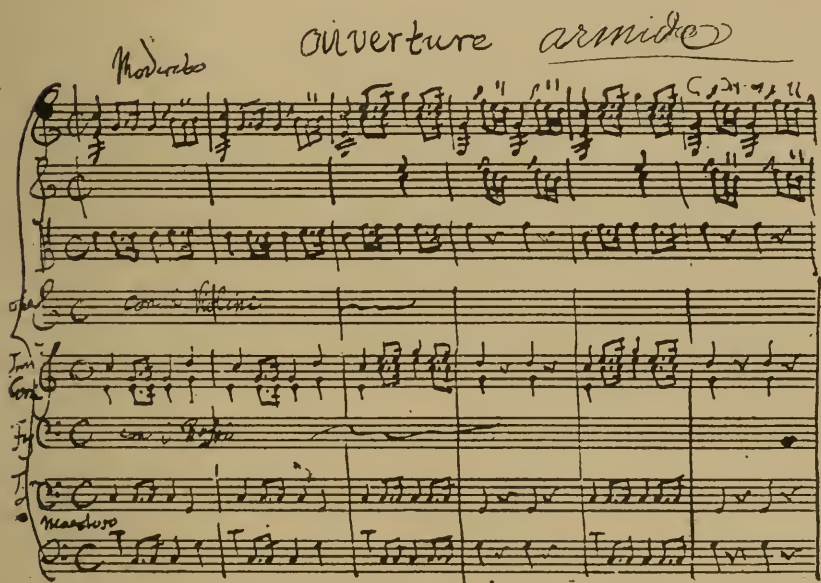 ouverture armide
Moderato
con i Violini
Corni
con i Bassi
Maestoso